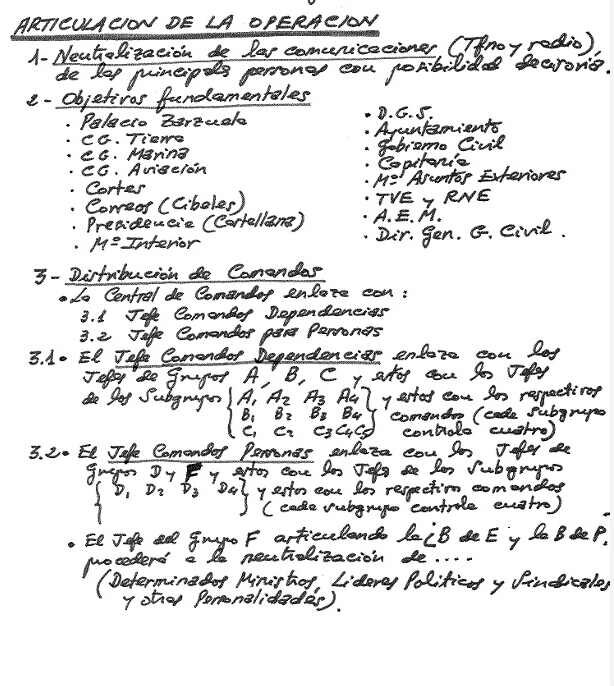 ARTICULACION DE LA OPERACION
1- Neutralización de las comunicaciones (Tfno y radio),
de las principales personas con posibilidad decisoria.
2- Objetivos fundamentales
. Palacio Zarzuela
. C.G. Tierra
. C.G. Marina
. C.G. Aviación
. Cortes
. Correos (Cibeles)
. Presidencia (Castellana)
. Mº Interior
. D.G.S.
. Ayuntamiento
. Gobierno Civil
. Capitanía
. Mº Asuntos Exteriores
. TVE y RNE
. A.E.M.
. Dir. Gen. G. Civil.
3- Distribución de Comandos
• La Central de Comandos enlaza con :
3.1 Jefe Comandos Dependencias
3.2 Jefe Comandos para Personas
3.1• El Jefe Comandos Dependencias enlaza con los
Jefes de Grupos A, B, C y estos con los Jefes
de los Subgrupos { A1 A2 A3 A4 } y estos con los respectivos
B1 B2 B3 B4 comandos (cada subgrupo
C1 C2 C3 C4 C5 controla cuatro)
3.2• El Jefe Comandos Personas enlaza con los Jefes de
grupos D y F y estos con los Jefes de los Subgrupos
{ D1 D2 D3 D4 } y estos con los respectivos comandos
(cada subgrupo controla cuatro)
• El Jefe del Grupo F articulando la ¿B de E y la B de P.
procederá a la neutralización de ....
(Determinados Ministros, Lideres Politicos y Sindicales
y otras Personalidades).